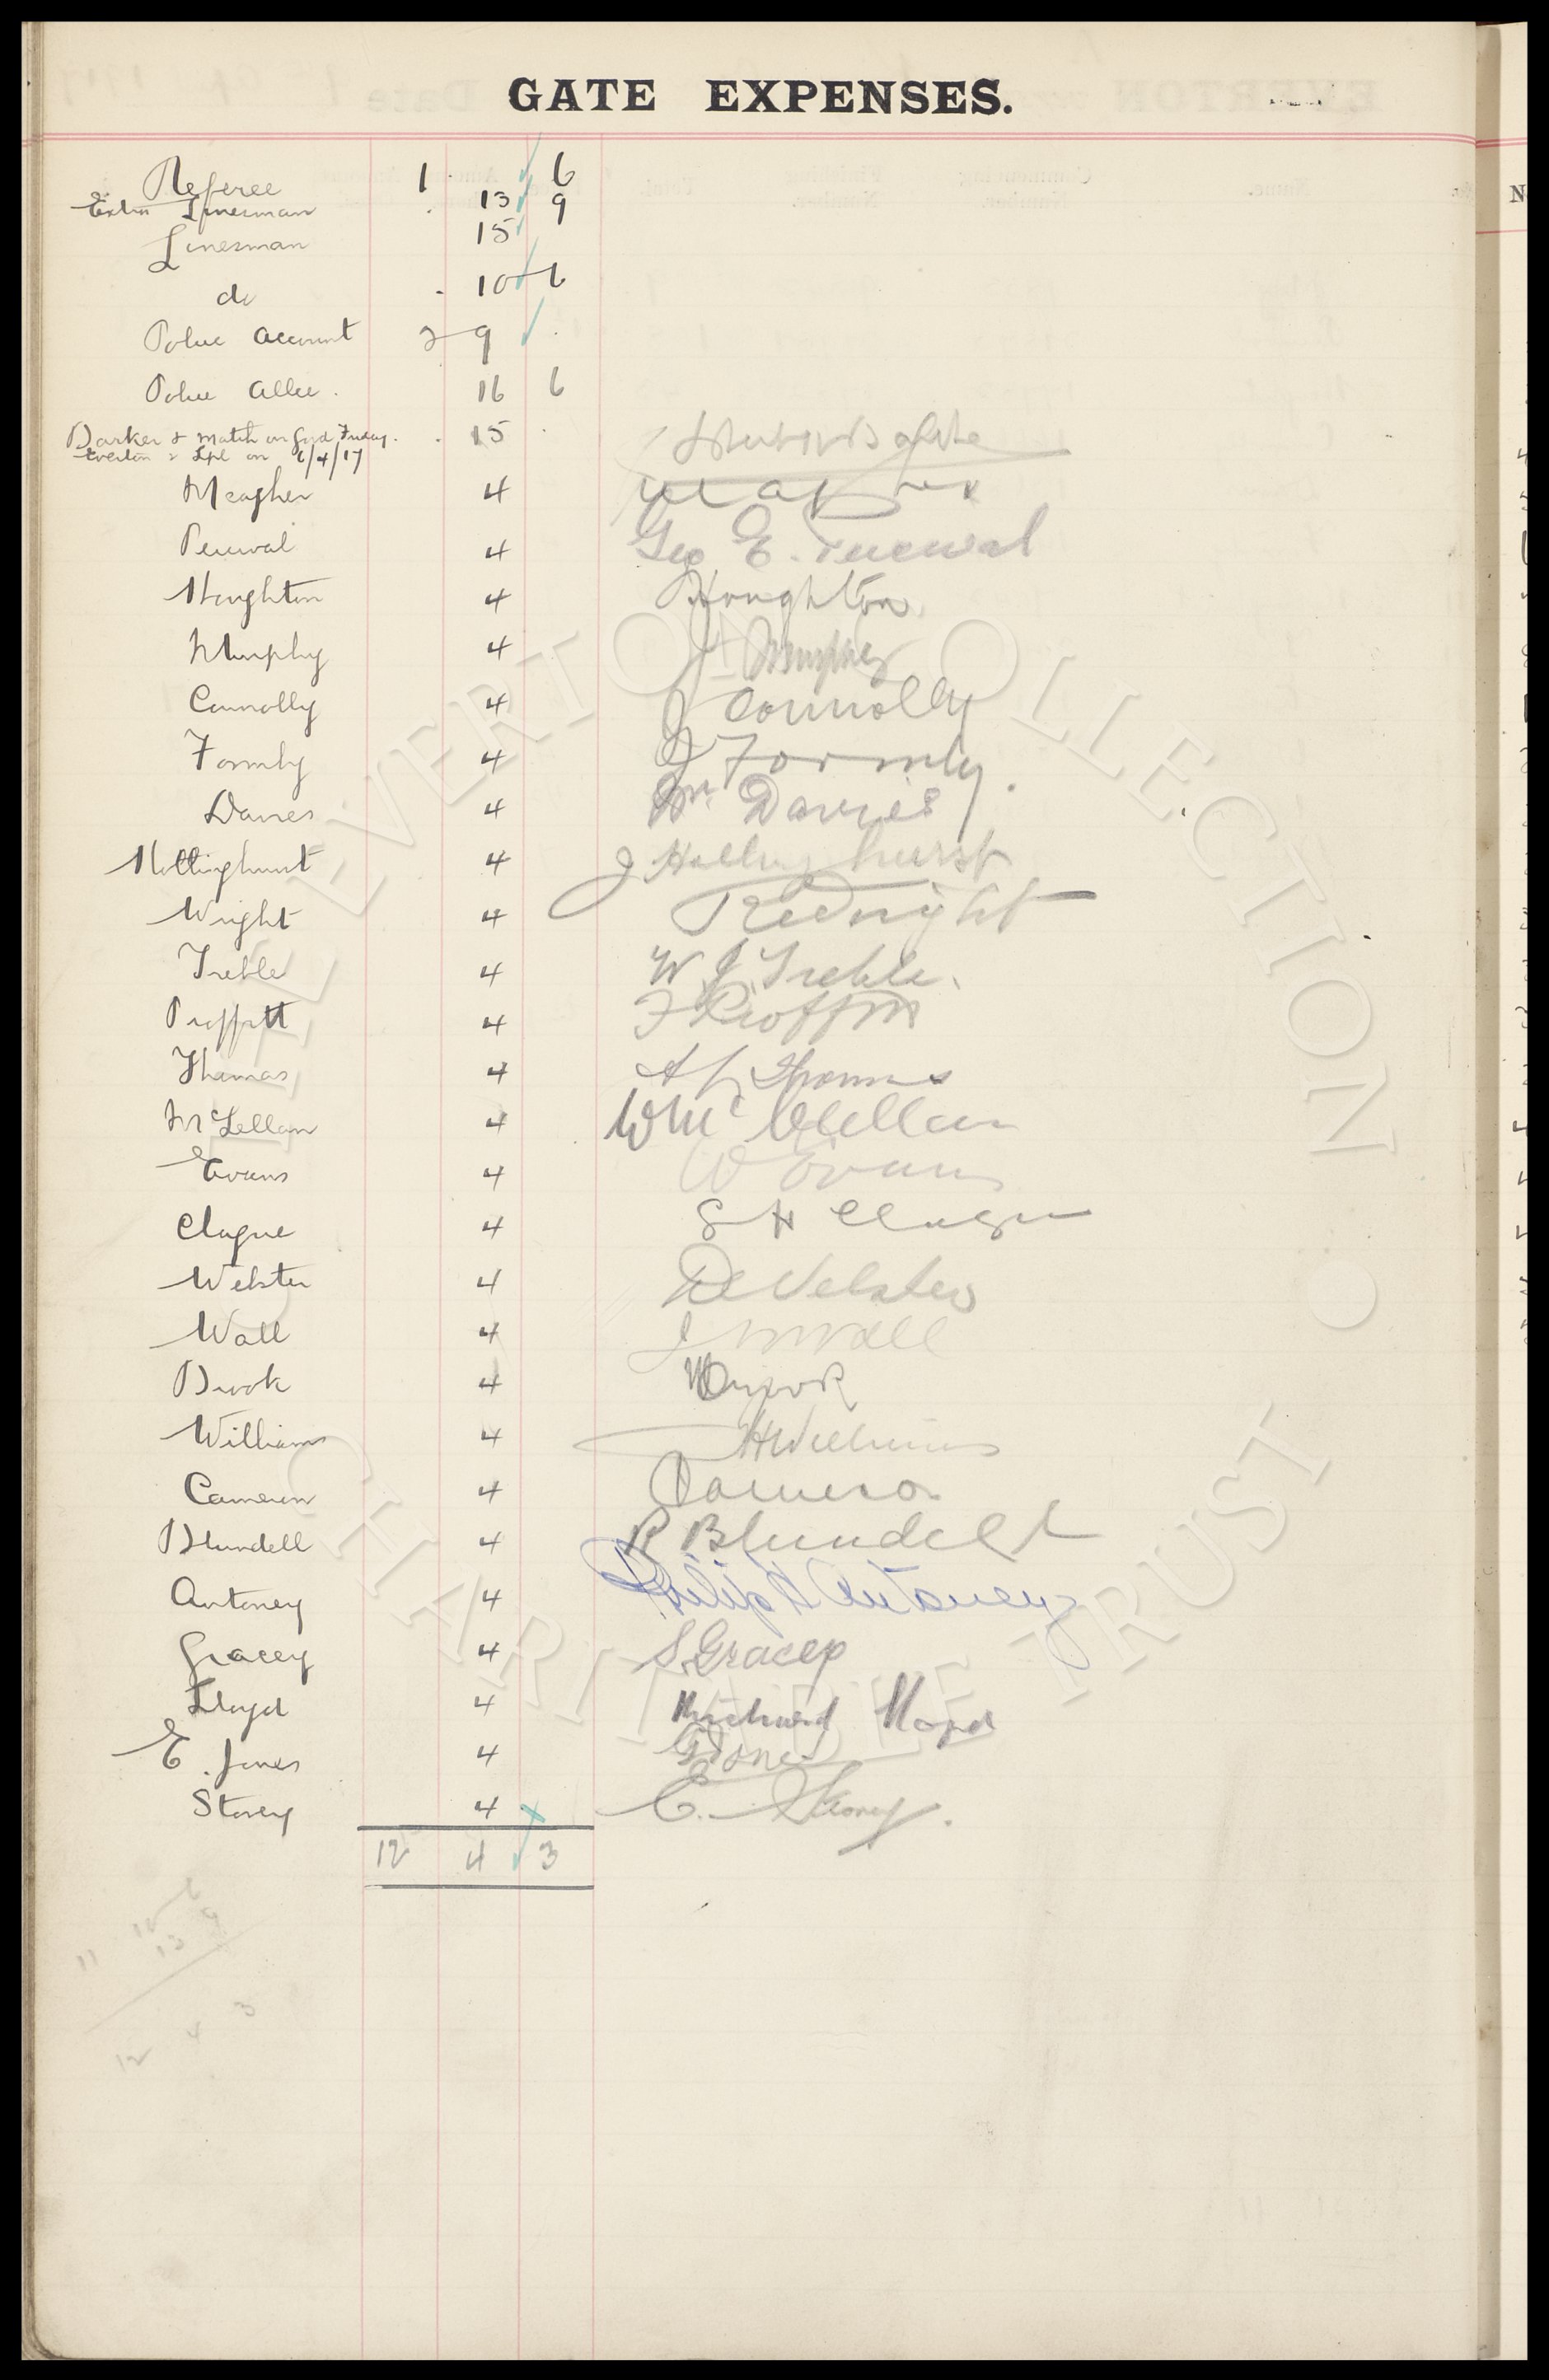 GATE EXPENSES.
Referee 1 . 6
Extra Linesman . 13 9
Linesman 15
do . 10 6
Police Account 2 9 .
Police Allce. 16 6
Barker & match on Good Friday. . 15 .
Everton & Lpl on 6/4/17
Meagher 4
Percival 4 Geo E. Percival
Houghton 4 Houghton
Murphy 4 J Murphy
Connolly 4 J Connolly
Formby 4 J Formby.
Davies 4 Wm Davies
Hollinghurst 4 J Hollinghurst
Wright 4 Wright
Treble 4 W. J. Treble.
Proffitt 4 F Proffitt
Thomas 4 Thomas
McLellan 4 W Mc Clellan
Evans 4 W Evans
Clague 4 S H Clague
Webster 4 Webster
Wall 4 J W Wall
Brook 4
Williams 4 H Williams
Cameron 4 Cameron
Blundell 4 R Blundell
Antoney 4 Philip H Antoney
Gracey 4 S. Gracey
Lloyd 4 Richard Lloyd
E. Jones 4 Jones
Storey 4 E. Storey.
12 4 3
6
10
9
11 13
12 4 3
THE EVERTON COLLECTION
CHARITABLE TRUST